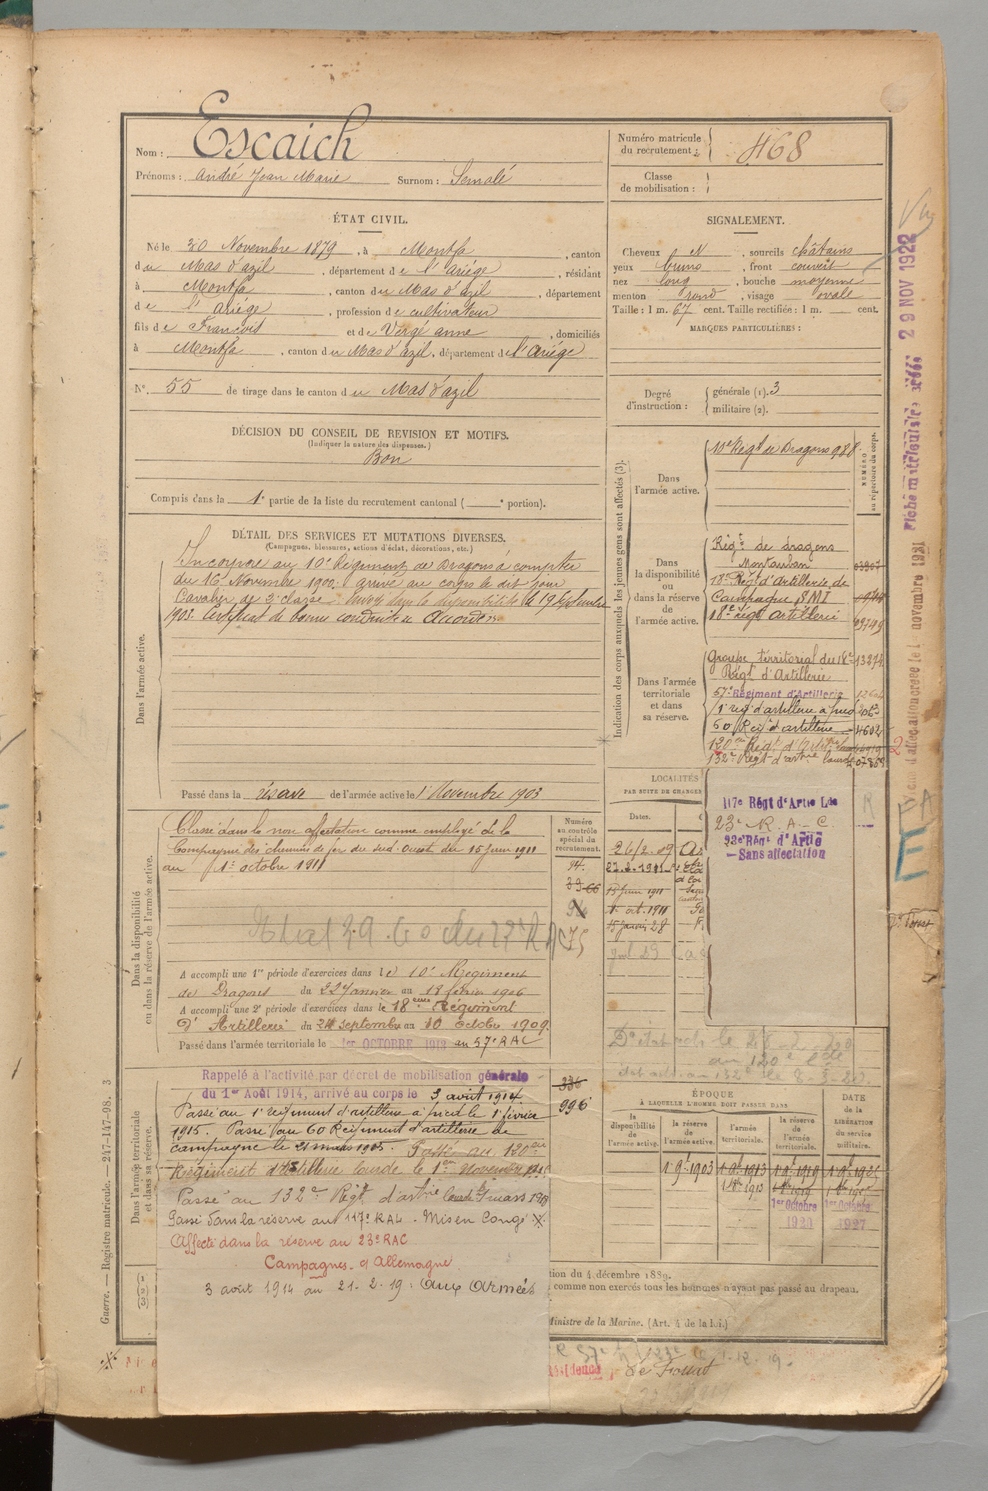 Nom : Escaich
Prénoms : André Jean Marie Surnom : Semalé
Numéro matricule du recrutement : 468
Classe de mobilisation :
ÉTAT CIVIL.
Né le 30 Novembre 1879, à Montfa, canton
du Mas d'azil, département de l'Ariége, résidant
à Montfa, canton du Mas d'azil, département
de l'Ariége, profession de cultivateur
fils de François et de Vergé anne, domiciliés
à Montfa, canton du Mas d'azil, département de l'Ariége
N° 55 de tirage dans le canton du Mas d'azil
SIGNALEMENT.
Cheveux N, sourcils châtains
yeux bruns, front couvert
nez long, bouche moyenne
menton rond, visage ovale
Taille : 1 m. 67 cent. Taille rectifiée : 1 m. cent.
MARQUES PARTICULIÈRES :
Degré d'instruction : générale (1). 3
militaire (2).
DÉCISION DU CONSEIL DE REVISION ET MOTIFS.
(Indiquer la nature des dispenses.)
Bon
Compris dans la 1e partie de la liste du recrutement cantonal ( e portion).
DÉTAIL DES SERVICES ET MUTATIONS DIVERSES.
(Campagnes, blessures, actions d'éclat, décorations, etc.)
Dans l'armée active.
Incorporé au 10e Régiment de Dragons à compter
du 16 Novembre 1900. arrivé au corps le dit jour
Cavalier de 2e classe. Envoyé dans la disponibilité le 19 Septembre
1903. Certificat de bonne conduite Accordé
Passé dans la réserve de l'armée active le 1 Novembre 1903
Indication des corps auxquels les jeunes gens sont affectés (3).
NUMÉRO au répertoire du corps.
Dans l'armée active.
10e Régt de Dragons 988
Dans la disponibilité ou dans la réserve de l'armée active.
Régt de dragons
Montauban
18e Régt d'Artillerie de
Campagne SMI
18e régt artillerie
Dans l'armée territoriale et dans sa réserve.
Groupe territorial du 18e 13274
Régt d'Artillerie
57e Régiment d'Artillerie
1r régt d'artillerie à pied
60 Régt d'artillerie 4602
120e Régt d'Artie
132e Régt d'artie lourde
117e Régt d'Artie Lde
23e R. A. C.
23e Régt d'Artie
- Sans affectation
Dans la disponibilité ou dans la réserve de l'armée active.
Classé dans la non affectation comme employé de la
Compagnie des chemins de fer du sud-ouest du 15 Juin 1911
au 1er octobre 1911
Numéro au contrôle spécial du recrutement.
A accompli une 1re période d'exercices dans le 10e Régiment
de Dragons du 22 Janvier au 18 février 1906
A accompli une 2e période d'exercices dans le 18eme Régiment
d'Artillerie du septembre au 10 Octobre 1909
Passé dans l'armée territoriale le 1er OCTOBRE 1913 au 57e RAC
LOCALITÉS
PAR SUITE DE CHANGEMENT
Dates.
26/2.09
15 Juin 1911
1. oct. 1911
15 janvier 28
Dans l'armée territoriale et dans sa réserve.
Rappelé à l'activité par décret de mobilisation générale
du 1er Août 1914, arrivé au corps le 3 août 1914
336
996
Passé au 1er régiment d'artillerie à pied le 1er février
1915. Passé au 60 Régiment d'artillerie de
campagne le 21 mars 1915. Passé au 120eme
Régiment d'Artillerie lourde le 1er Novembre
Passé au 132e Régt d'artie lourde 1 mars 1918
Passé dans la réserve au 117e RAL. Mis en Congé X
Affecté dans la réserve au 23e RAC
Campagnes c/ Allemagne
3 août 1914 au 21.2.19 : aux Armées
ÉPOQUE
À LAQUELLE L'HOMME DOIT PASSER DANS
la disponibilité de l'armée active.
la réserve de l'armée active.
l'armée territoriale.
la réserve de l'armée territoriale.
DATE de la LIBÉRATION du service militaire.
1 9e 1903
1er Octobre 1920
1er Octobre 1927
tion du 4 décembre 1889.
comme non exercés tous les hommes n'ayant pas passé au drapeau.
Ministre de la Marine. (Art. 4 de la loi.)
Résidence
Guerre. — Registre matricule. — 247-147-98. 3
29 NOV 1922